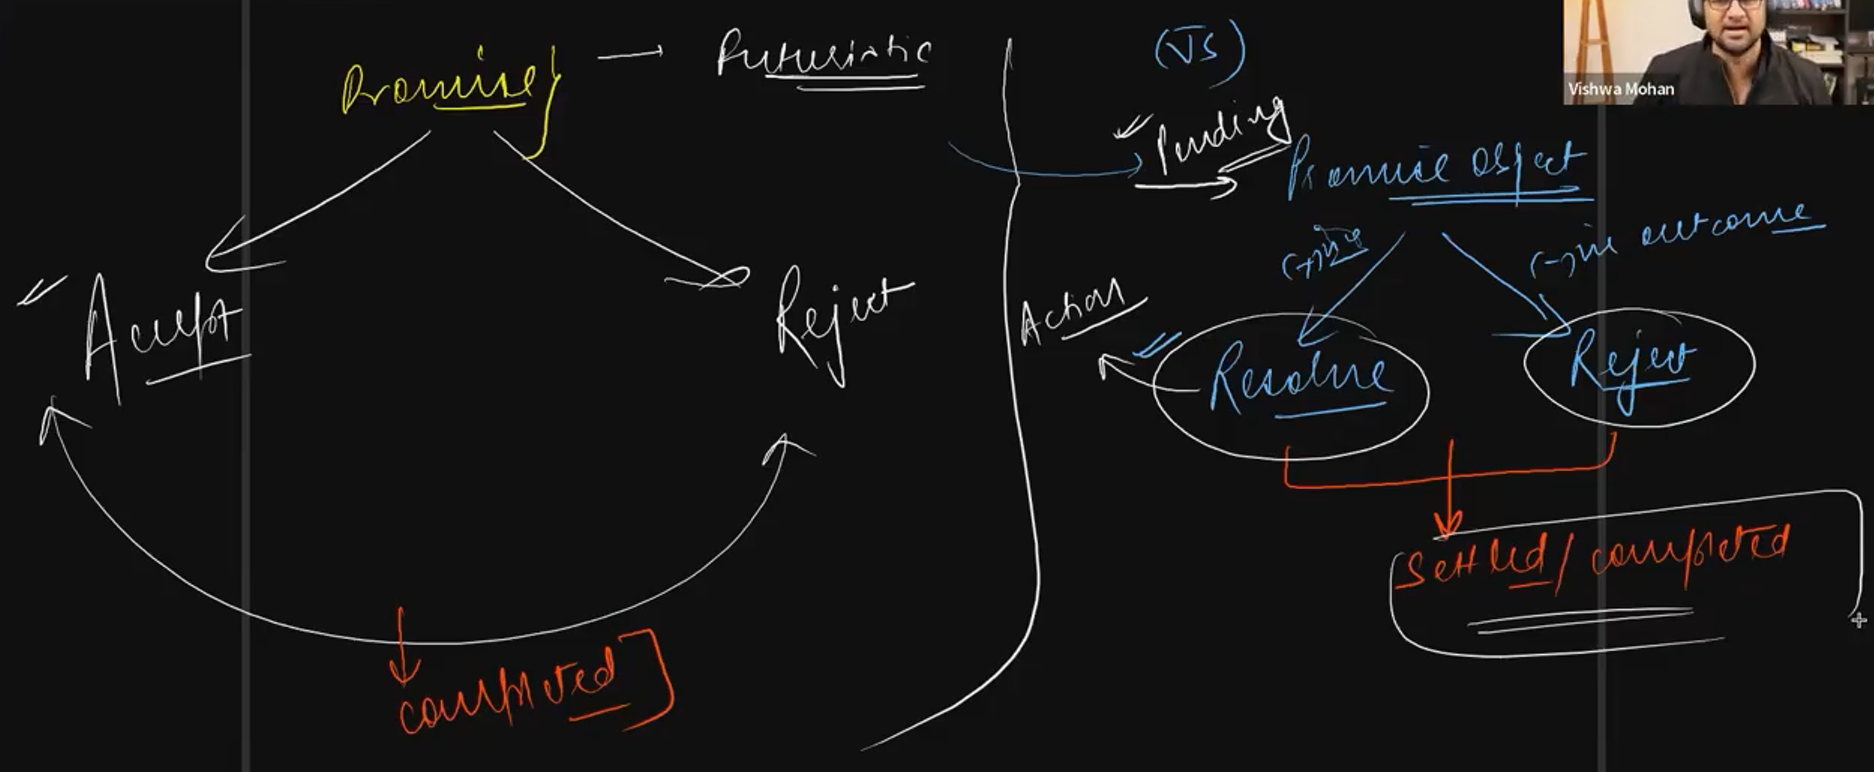 Promise → Futuristic
Accept
Reject
completed
(JS)
Pending
Promise Object
(+)ive
(-)ive outcome
Action
Resolve
Reject
Settled / completed
Vishwa Mohan